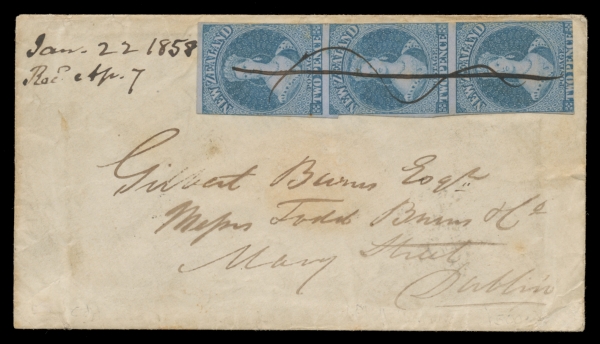 Jan. 22 1858
Recd. Ap. 7
NEW ZEALAND TWO PENCE
NEW ZEALAND TWO PENCE
NEW ZEALAND TWO PENCE
Gilbert Burns Esqr.
Messrs Todd Burns & Co
Mary Street
Dublin